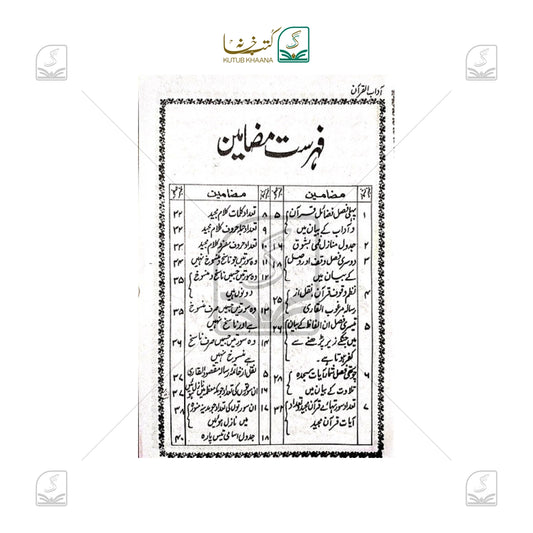 کتب خانہ
KUTUB KHAANA
آداب القرآن
فہرست مضامین
مضامین
۱ پہلی فصل فضائل قرآن ۵
و آداب کے بیان میں
۲ جدول منازل فمی بشوق ۱۶
۳ دوسری فصل وقف اور وصل ۱۸
کے بیان میں
۴ نظم وقوف قرآن، نقل از ۲۵
رسالہ مرغوب القاری
۵ تیسری فصل ان الفاظ کے بیان ۲۶
میں جنکے زیر زبر پڑھنے سے
کفر ہوتا ہے۔
۶ چوتھی فصل آیات سجدہ ۲۸
تلاوت کے بیان میں
۷ تعداد سورتہائے قرآن مجید و تعداد ۳۲
آیات قرآن مجید
مضامین
۸ تعداد کلمات کلام مجید ۳۲
۹ تعداد جملہ حروف کلام مجید
۱۰ تعداد حروف کلام مجید
۱۱ وہ سورتیں جو ناسخ و منسوخ نہیں ۳۴
۱۲ وہ سورتیں جنمیں ناسخ و منسوخ ۳۵
دونوں ہیں
۱۳ وہ سورتیں جنمیں صرف منسوخ ۳۵
ہے اور ناسخ نہیں
۱۴ وہ سورتیں جنمیں صرف ناسخ ۳۶
ہے منسوخ نہیں
۱۵ نقل از خاتمہ رسالہ مقصود القاری ۳۷
۱۶ ان سورتوں کی تعداد جو مکہ معظمہ میں نازل ہوئیں ۳۷
۱۷ ان سورتوں کی تعداد جو مدینہ منورہ ۳۸
میں نازل ہوئیں
۱۸ جدول اسامی تیس پارہ ۴۰